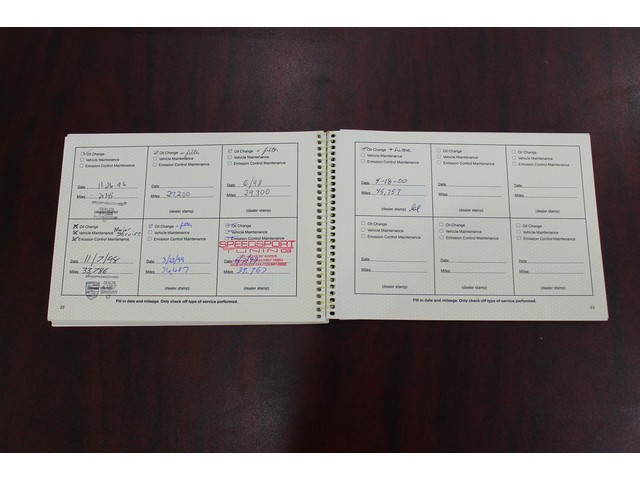 Oil Change
Vehicle Maintenance
Emission Control Maintenance
Date 11-26-96
Miles
Oil Change - filter
Vehicle Maintenance
Emission Control Maintenance
Date
Miles 27200
(dealer stamp)
Oil Change - filter
Vehicle Maintenance
Emission Control Maintenance
Date 6/98
Miles 29,300
(dealer stamp)
Oil Change
Vehicle Maintenance
Emission Control Maintenance
Major
Service
Date 11/7/98
Miles 33,786
Oil Change - filter
Vehicle Maintenance
Emission Control Maintenance
Date 3/12/99
Miles 36,687
(dealer stamp)
Oil Change
SPEEDSPORT
TUNING
Date
Miles
(dealer stamp)
Fill in date and mileage. Only check off type of service performed.
22
Oil Change + filter
Vehicle Maintenance
Emission Control Maintenance
Date 4-18-00
Miles 45,757
(dealer stamp)
Oil Change
Vehicle Maintenance
Emission Control Maintenance
Date
Miles
(dealer stamp)
Oil Change
Vehicle Maintenance
Emission Control Maintenance
Date
Miles
(dealer stamp)
Oil Change
Vehicle Maintenance
Emission Control Maintenance
Date
Miles
(dealer stamp)
Oil Change
Vehicle Maintenance
Emission Control Maintenance
Date
Miles
(dealer stamp)
Oil Change
Vehicle Maintenance
Emission Control Maintenance
Date
Miles
(dealer stamp)
Fill in date and mileage. Only check off type of service performed.
23